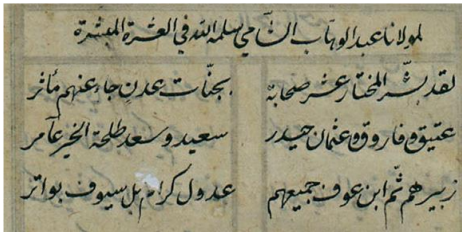 لمولانا عبد الوهاب الشامي سلمه الله في العشرة المبشرة
لقد بشر المختار عشر صحابة بجنات عدن جاء عنهم مآثر
عتيق وفاروق وعثمان حيدر سعيد وسعد طلحة الخير عامر
زبيرهم ثم ابن عوف جميعهم عدول كرام بل سيوف بواتر